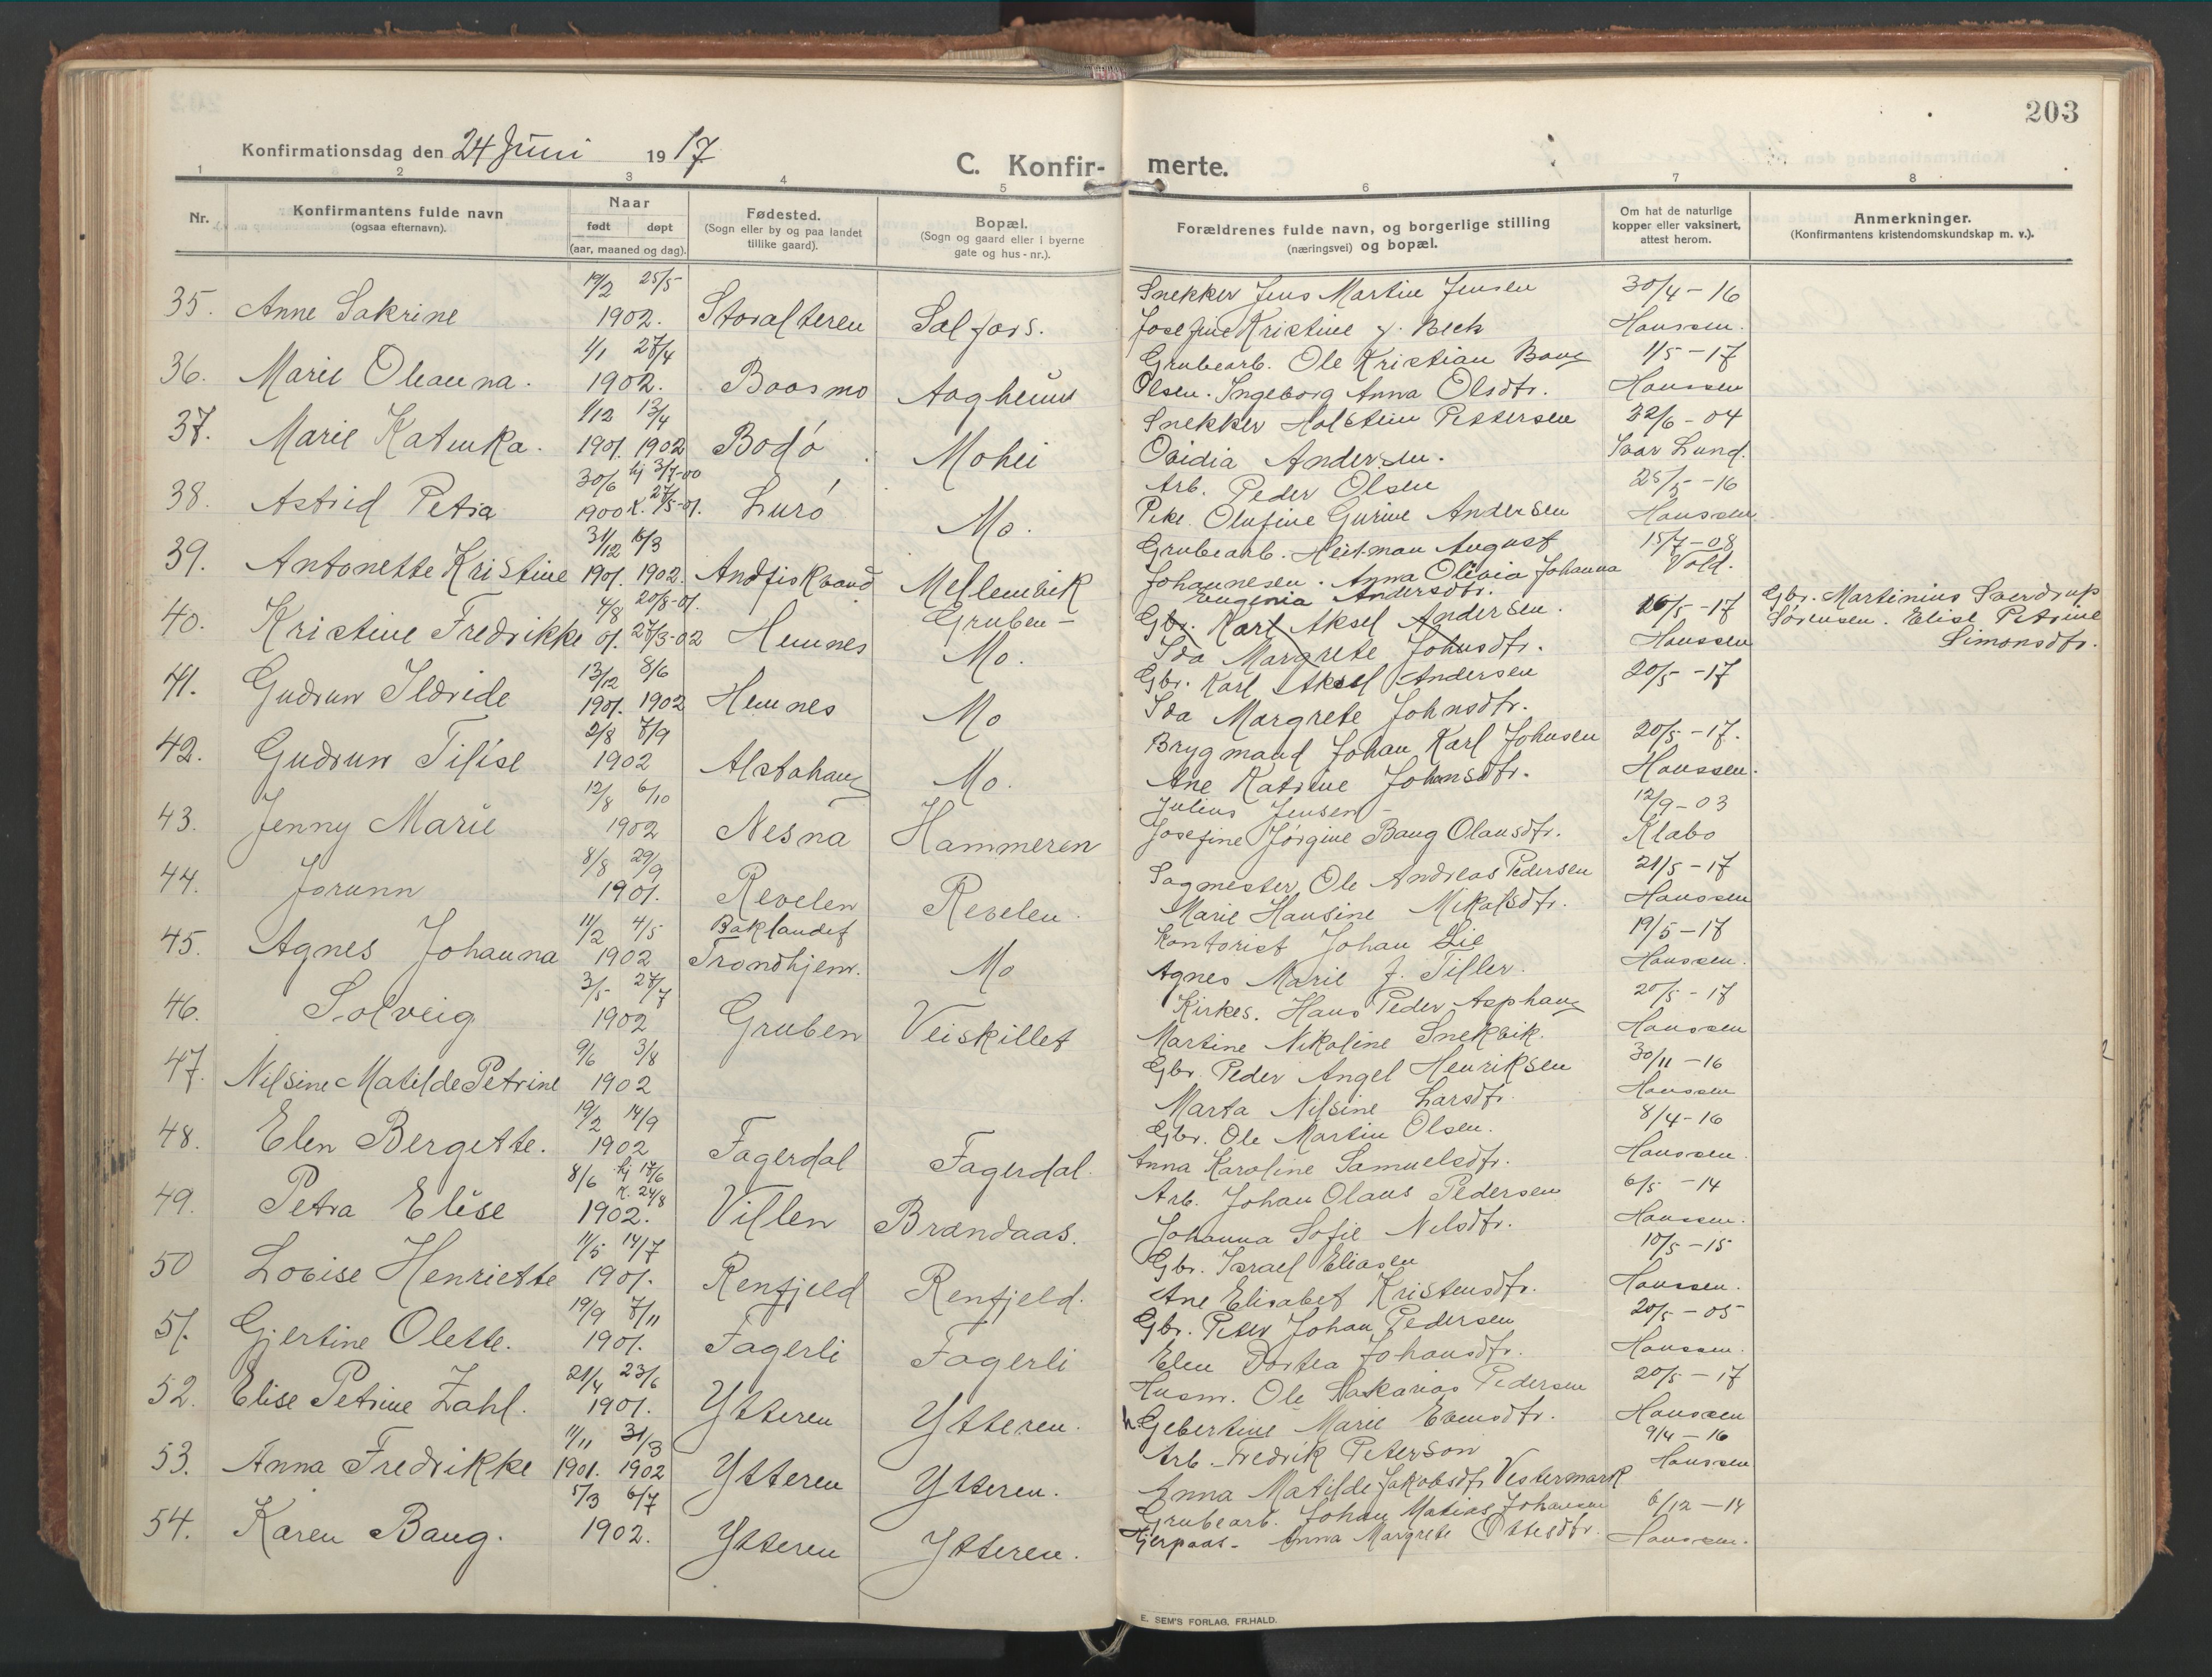 203
Konfirmationsdag den 24 Juni 1917
C. Konfir- merte.
1 2 3 4 5 6 7 8
Nr.
Konfirmantens fulde navn
(ogsaa efternavn).
Naar
født døpt
(aar, maaned og dag).
Fødested.
(Sogn eller by og paa landet
tillike gaard).
Bopæl.
(Sogn og gaard eller i byerne
gate og hus-nr.).
Forældrenes fulde navn, og borgerlige stilling
(næringsvei) og bopæl.
Om hat de naturlige
kopper eller vaksinert,
attest herom.
Anmerkninger.
(Konfirmantens kristendomskundskap m. v.).
35. Anne Sakrine 19/2 25/5 1902. Storalteren Selfors. Snekker Jens Martin Jensen 30/4-16
Josefine Kristine f. Bech Hanssen.
36. Marie Oleanna. 1/1 27/4 1902. Baasmo Aagheim Grubearb. Ole Kristian Baug 1/5-17
Olsen. Ingeborg Anna Olsdtr. Hanssen
37. Marie Katinka. 1/12 13/4 1901. 1902 Bodö Mohei Snekker Holstein Pettersen 22/6-04
Ovidia Andersen. Ivar Lund.
38. Astrid Petra 30/6 hj 3/7-00 1900 K. 27/5-01. Lurö Mo. Arb. Peder Olsen 25/5-16
Pike Olufine Gurine Andersen Hanssen
39. Antonette Kristine 31/12 16/3 1901. 1902. Andfiskvand Mellemvik Grubearb. Heitman August 15/7-08
Johannesen. Anna Olivia Johanna Vold.
Eugenia Andersdtr.
40. Kristine Fredrikke 4/8 20/8-01. 01. 27/3-02 Hemnes Gruben- Mo. Gbr. Karl Aksel Andersen. 16/5-17 Gbr. Martinius Sverdrup
Ida Margrete Johnsdtr. Hanssen Sörensen. Elise Petrine
Simonsdtr.
41. Gudrun Ildride 13/12 8/6 1901. 1902 Hemnes Mo Gbr. Karl Aksel Andersen 20/5-17
Ida Margrete Johnsdtr.
42. Gudrun Tilise 2/8 7/9 1902 Alstahaug Mo. Brygmand Johan Karl Johnsen 20/5-17.
Ane Katrine Johansdtr. Hanssen.
43. Jenny Marie 12/8 6/10 1902 Nesna Hammeren Julius Jensen- 12/9-03
Josefine Jörgine Baug Olausdtr. Klabo
44. Jorunn 8/8 29/9 1901. Revelen Revelen. Sagmester Ole Andreas Pedersen 21/5-17
Marie Hansine Mikalsdtr. Hanssen
45. Agnes Johanna 11/2 4/5 1902 Baklandet Trondhjem. Mo Kontorist Johan Lie 19/5-17
Agnes Marie f. Tiller. Hanssen.
46. Solveig 3/5 27/7 1902 Gruben Veiskillet Kirkes. Hans Peder Asphaug 20/5-17
Martine Nikoline Snekvik. Hanssen
47. Nilsine Matilde Petrine 9/6 3/8 1902 Gbr. Peder Angel Henriksen 30/11-16
Marta Nilsine Larsdtr. Hanssen
48. Elen Bergette. 19/2 14/9 1902 Fagerdal Fagerdal. Gbr. Ole Martin Olsen. 8/4-16
Anna Karoline Samuelsdtr. Hanssen.
49. Petra Elise 8/6 hj 17/6 K. 24/8 1902. Villen Brændaas. Arb. Johan Olaus Pedersen 6/5-14
Johanna Sofie Nilsdtr. Hanssen.
50 Lovise Henriette 11/5 14/7 1901. Renfjeld Renfjeld. Gbr. Israel Eliasen 10/5-15
Ane Elisabet Kristensdtr. Hanssen.
51. Gjertine Olette. 19/9 7/11 1901. Fagerli Fagerli Gbr. Peter Johan Pedersen 20/5-05
Elen Dortea Johansdtr. Hanssen.
52. Elise Petrine Zahl. 21/4 23/6 1901. Ytteren Ytteren. Husm. Ole Sakarias Pedersen 20/5-17
h. Gebertine Marie Evensdtr. Hanssen
53. Anna Fredrikke 11/11 31/3 1901. 1902 Ytteren Ytteren. Arb. Fredrik Peterson 9/4-16
Anna Matilde Jakobsdtr Vestermark Hanssen
54. Karen Baug. 5/3 6/7 1902. Ytteren Ytteren. Grubearb. Johan Matias Johansen 6/12-14
Hjerpaas- Anna Margrete Ottesdtr. Hanssen.
E. SEM'S FORLAG, FR.HALD.